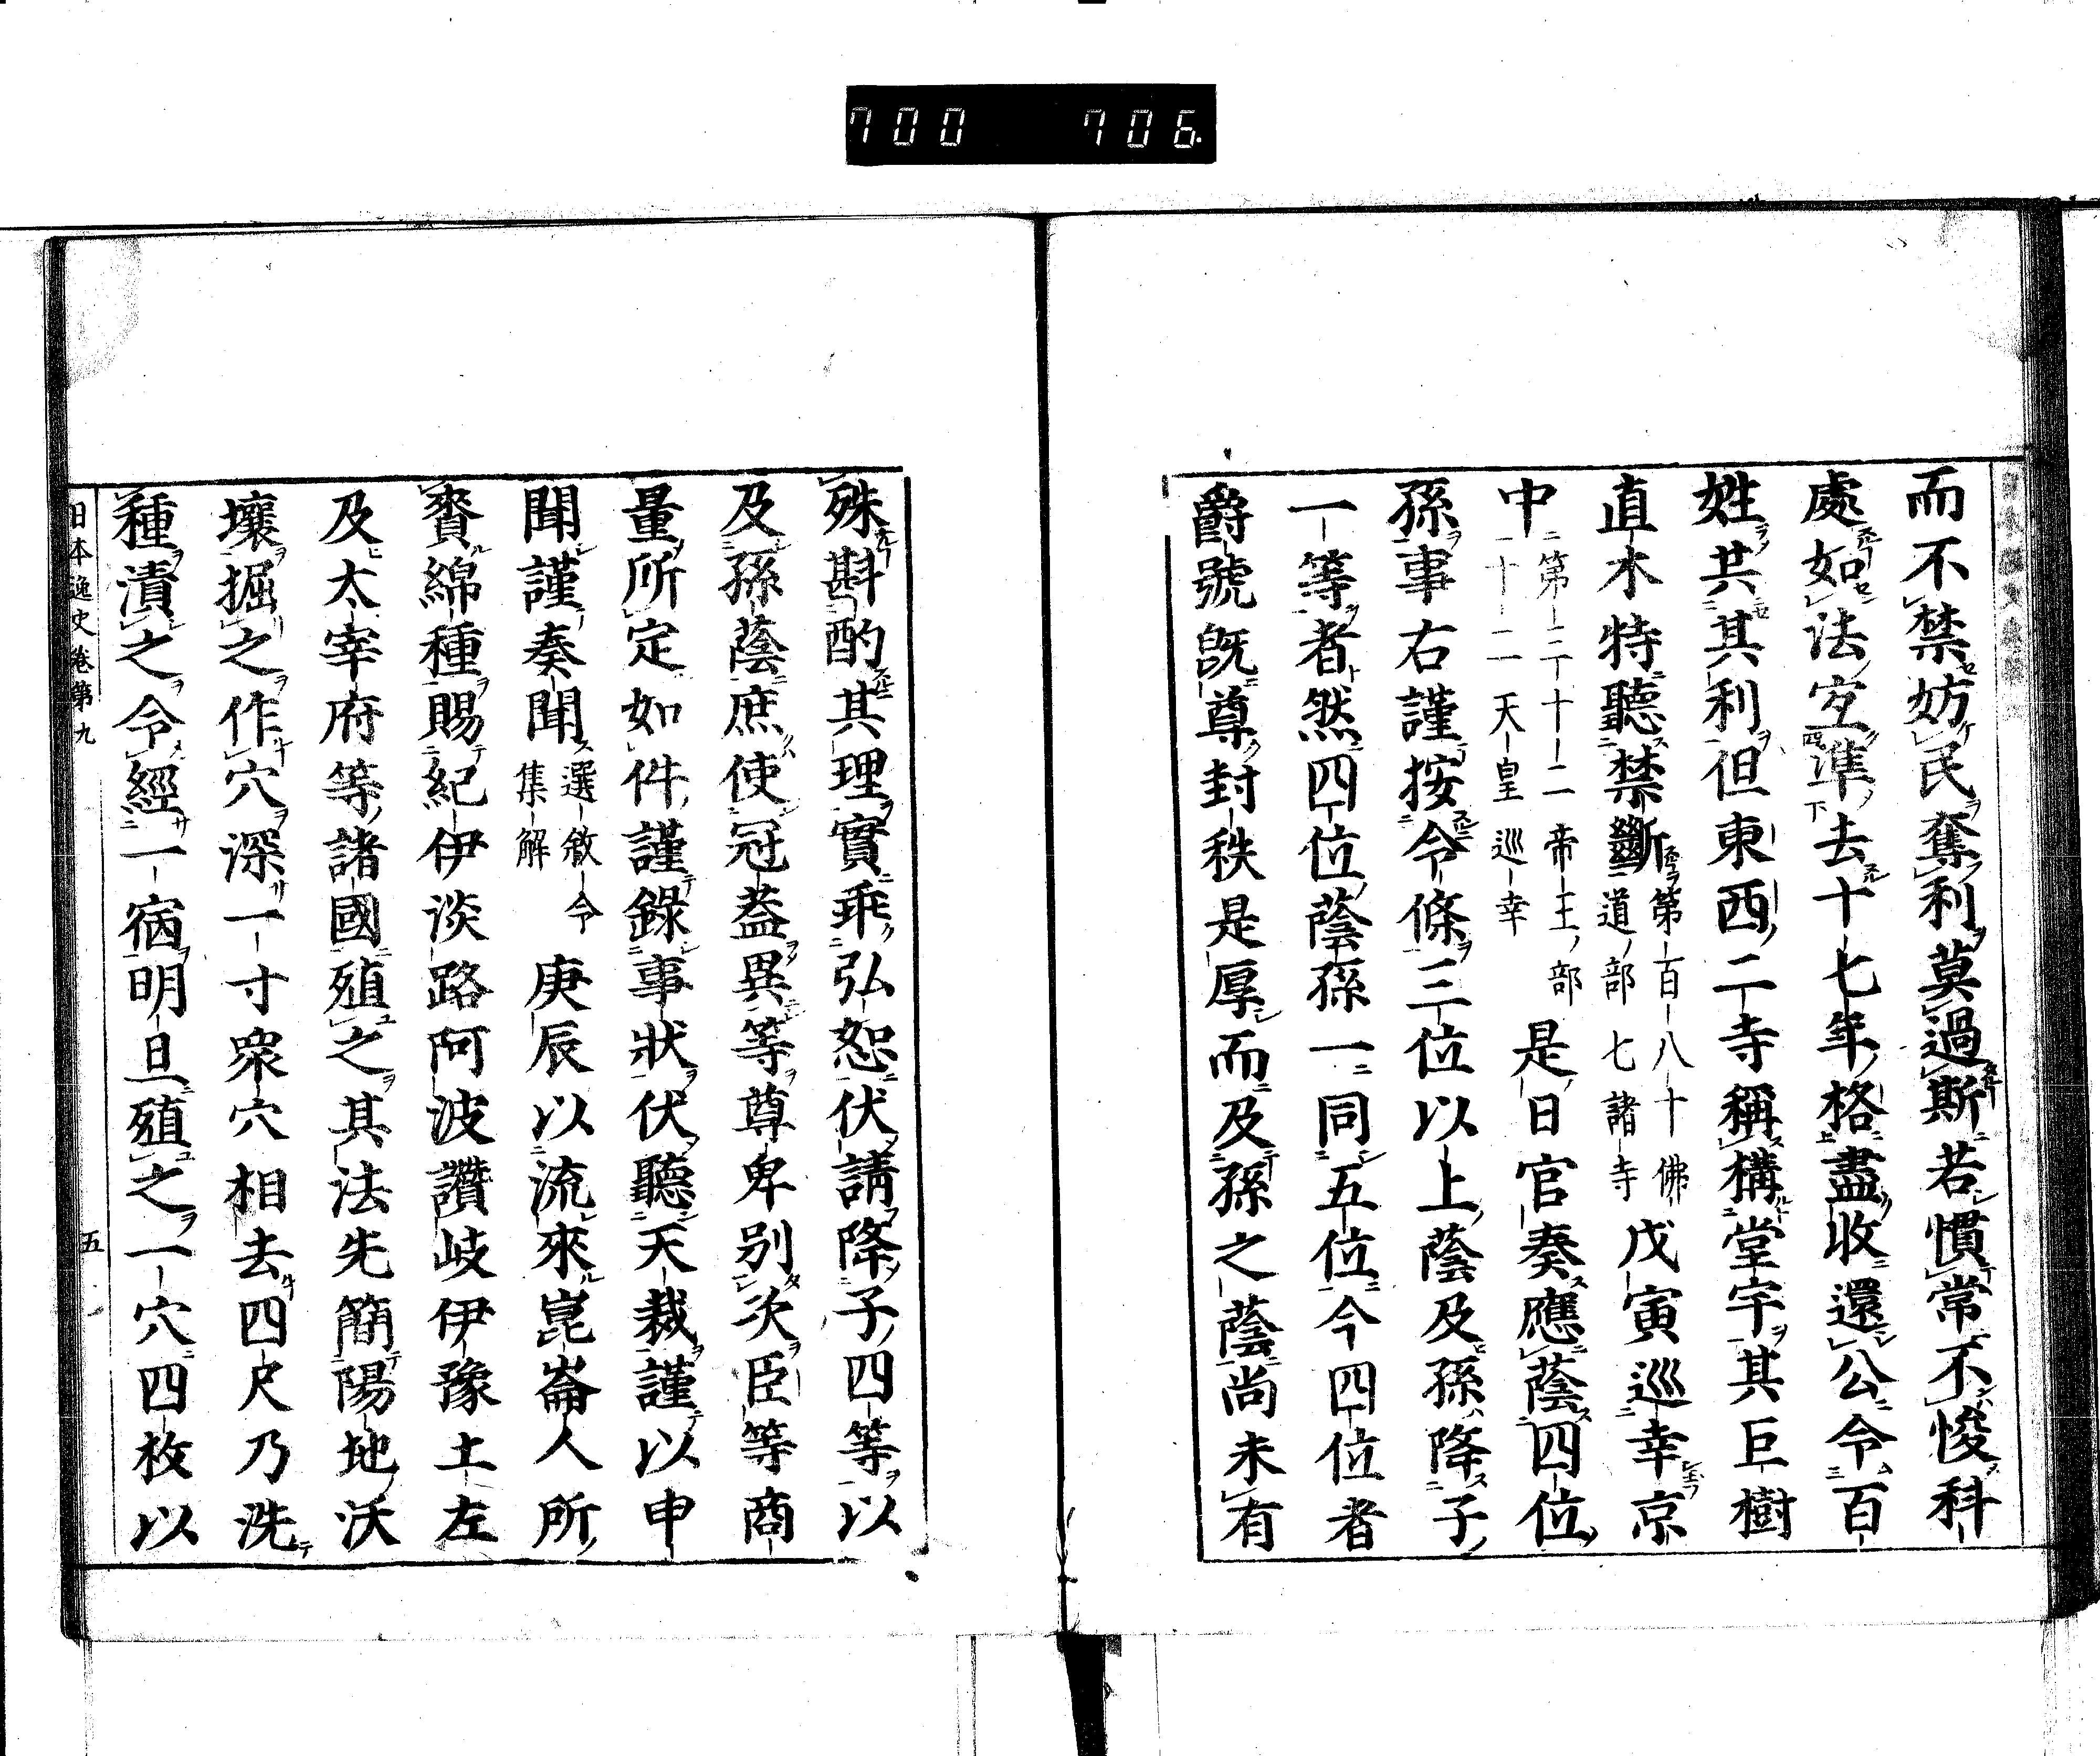 700 706
而不禁妨民奪利莫過斯若慣常不悛科
處如法宜准去十七年格盡收還公令百
姓共其利但東西二寺稱構堂宇其巨樹
直木特聽禁斷第一百八十佛道部七諸寺戊寅巡幸京
中第三十二帝王部十二天皇巡幸是日官奏應蔭四位
孫事右謹按令條三位以上蔭及孫降子
一等者然四位蔭孫一同五位今四位者
爵號旣尊封秩是厚而及孫之蔭尚未有
殊斟酌其理實乖弘恕伏請降子四等以
及孫蔭庶使冠蓋異等尊卑別次臣等商
量所定如件謹錄事狀伏聽天裁謹以申
聞謹奏聞選敘令集解庚辰以流來崑崙人所
賚綿種賜紀伊淡路阿波讚岐伊豫土左
及太宰府等諸國殖之其法先簡陽地沃
壤掘之作穴深一寸衆穴相去四尺乃洗
種漬之令經一宿明旦殖之一穴四枚以
日本逸史卷第九 五